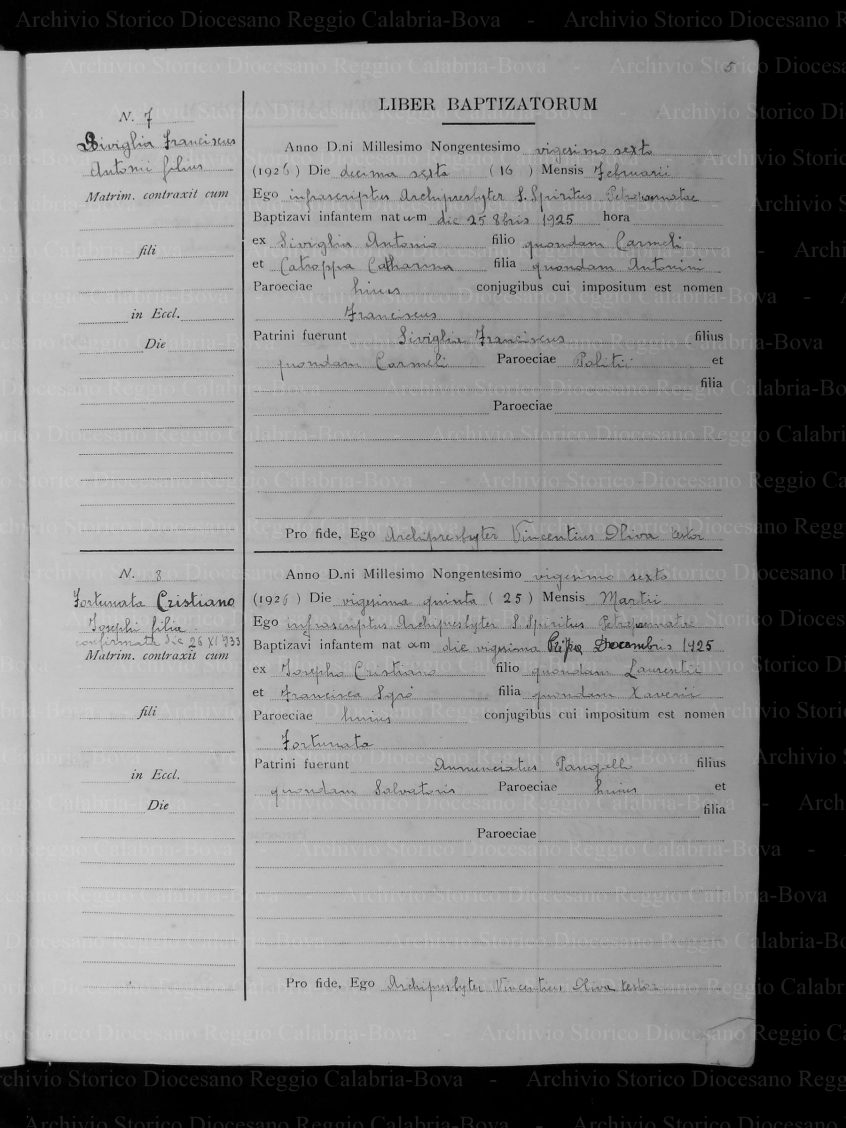 5
LIBER BAPTIZATORUM
N. 7
Siviglia Franciscus
Antoni filius
Matrim. contraxit cum
fili
in Eccl.
Die
Anno D.ni Millesimo Nongentesimo vigesimo sexto
(1926) Die decima sexta (16) Mensis Februarii
Ego infrascriptus Archipresbyter S. Spiritus
Baptizavi infantem natum die 25 8bris 1925 hora
ex Siviglia Antonio filio quondam Carmeli
et Catroppa Catharina filia quondam Antonini
Paroeciae huius conjugibus cui impositum est nomen
Franciscus
Patrini fuerunt Siviglia Franciscus filius
quondam Carmeli Paroeciae et
filia
Paroeciae
Pro fide, Ego Archipresbyter Vincentius Oliva testor
N. 8
Fortunata Cristiano
Josephi filia
confirmata die 26 XI 933
Matrim. contraxit cum
fili
in Eccl.
Die
Anno D.ni Millesimo Nongentesimo vigesimo sexto
(1926) Die vigesima quinta (25) Mensis Martii
Ego infrascriptus Archipresbyter S. Spiritus
Baptizavi infantem natam die vigesima Decembris 1925
ex Josepho Cristiano filio quondam Laurentii
et Francisca Sgrò filia quondam Xaverii
Paroeciae huius conjugibus cui impositum est nomen
Fortunata
Patrini fuerunt Annunciatus Pangallo filius
quondam Salvatoris Paroeciae huius et
filia
Paroeciae
Pro fide, Ego Archipresbyter Vincentius Oliva testor
Archivio Storico Diocesano Reggio Calabria-Bova